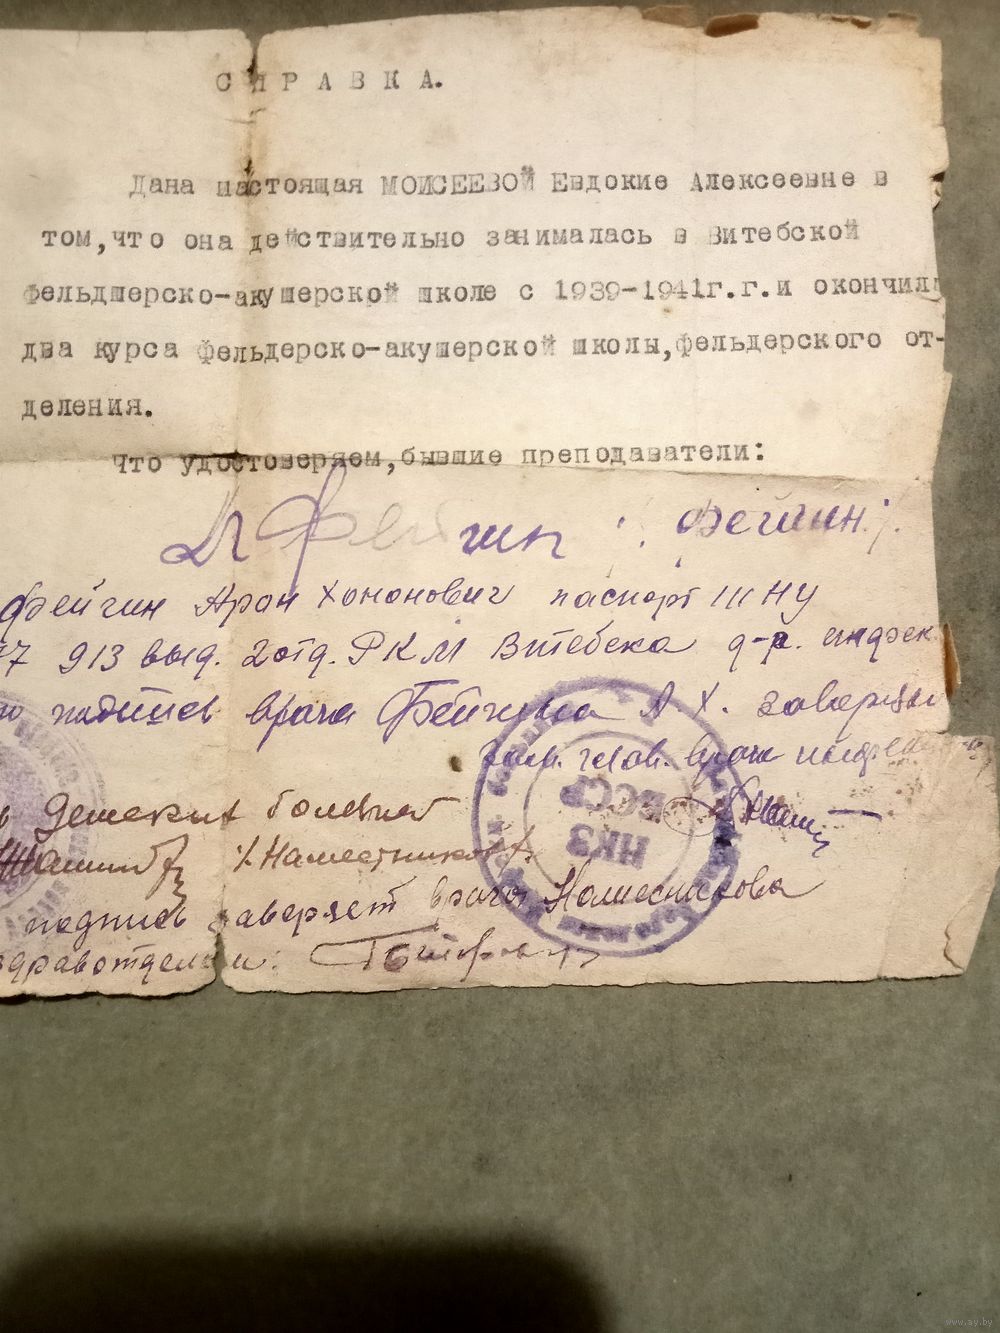 СПРАВКА.
Дана настоящая МОИСЕЕВОЙ Евдокие Алексеевне в
том,что она действительно занималась в Витебской
фельдшерско-акушерской школе с 1939-1941г.г.и окончила
два курса фельдерско-акушерской школы,фельдерского от-
деления.
Что удостоверяем,бывшие преподаватели:
А Фейгин : Фейгин/.
Фейгин Арон Хононович паспорт III НУ
913 выд. 2 отд. РКМ Витебска д-р. инфек
подпись врача Фейгина А Х. заверяю
врач
Детских болезней
/Наместникова/.
подпись заверяет врача Наместникова
здравотделом:
НКЗ
БССР
www.ay.by